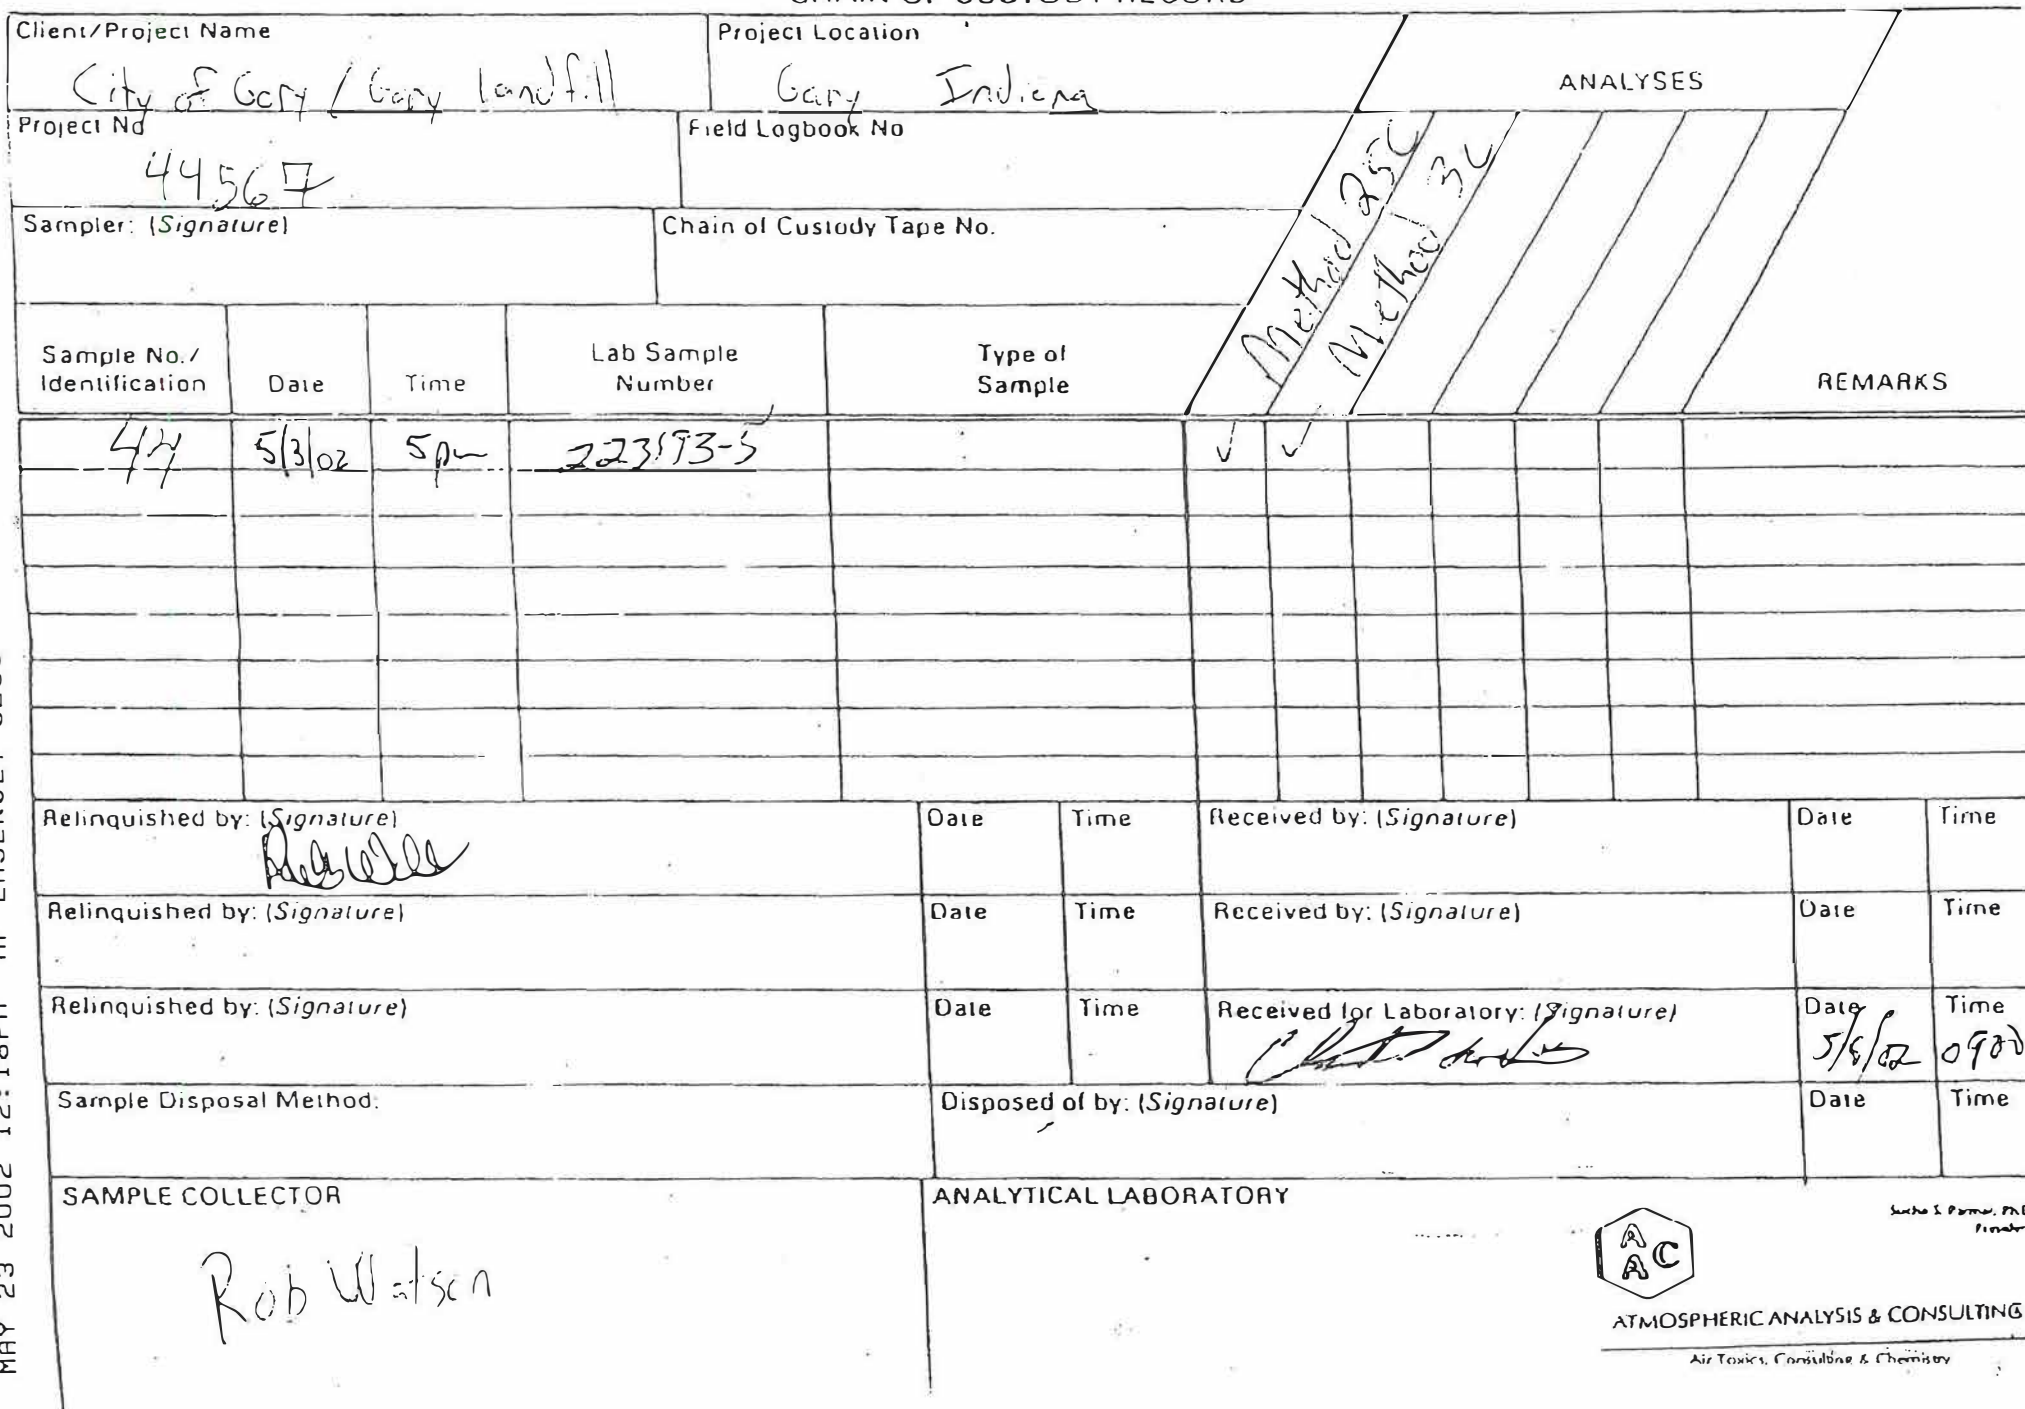 Client/Project Name
City of Gary / Gary landfill
Project Location
Gary Indiana
ANALYSES
Project No
44567
Field Logbook No
Method 25C
Method 3C
Sampler: (Signature)
Chain of Custody Tape No.
Sample No./ Identification
Date
Time
Lab Sample Number
Type of Sample
REMARKS
44 5/3/02 5pm ✓ ✓
Relinquished by: (Signature)
Date
Time
Received by: (Signature)
Date
Time
Relinquished by: (Signature)
Date
Time
Received by: (Signature)
Date
Time
Relinquished by: (Signature)
Date
Time
Received for Laboratory: (Signature)
Date
Time
5/8/02 0900
Sample Disposal Method:
Disposed of by: (Signature)
Date
Time
SAMPLE COLLECTOR
Rob Watson
ANALYTICAL LABORATORY
AAC
ATMOSPHERIC ANALYSIS & CONSULTING
Air Toxics, Consulting & Chemistry
MAY 23 2002 12:18PM